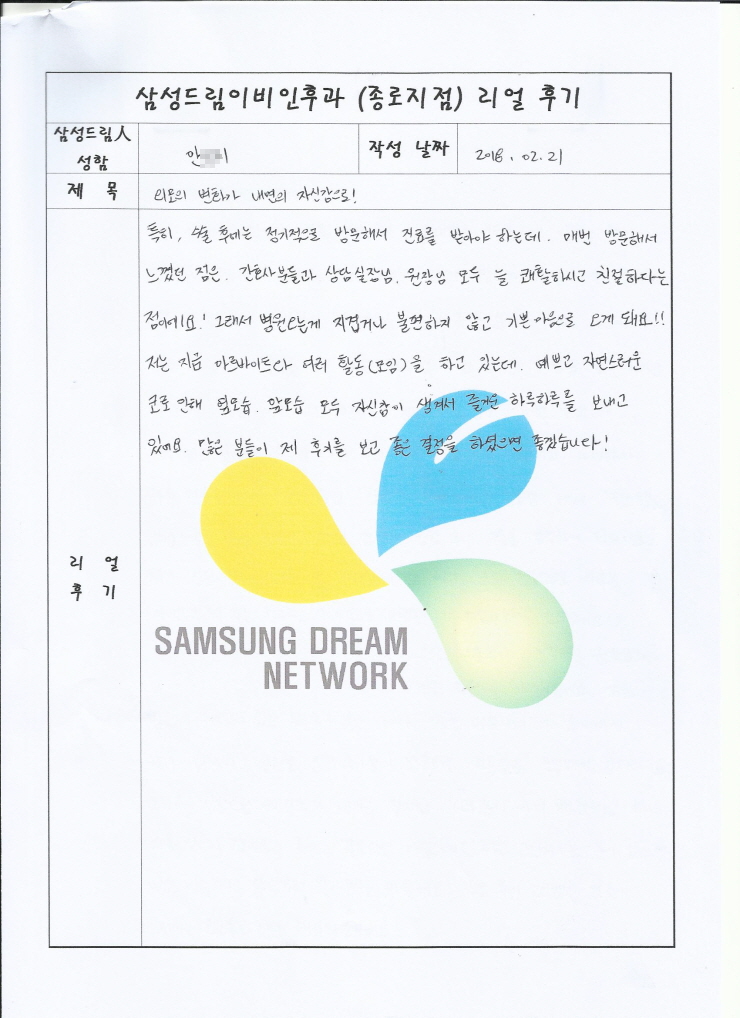 삼성드림이비인후과 (종로지점) 리얼 후기
삼성드림人
성함
안 이
작성 날짜
2018. 02. 21
제 목
외모의 변화가 내면의 자신감으로!
특히, 수술 후에는 정기적으로 방문해서 진료를 받아야 하는데. 매번 방문해서
느꼈던 점은. 간호사분들과 상담실장님, 원장님 모두 늘 쾌활하시고 친절하다는
점이에요! 그래서 병원오는게 지겹거나 불편하지 않고 기쁜마음으로 오게 돼요!!
저는 지금 아르바이트나 여러 활동(모임)을 하고 있는데. 예쁘고 자연스러운
코로 인해 옆모습. 앞모습 모두 자신감이 생겨서 즐거운 하루하루를 보내고
있어요. 많은 분들이 제 후기를 보고 좋은 결정을 하셨으면 좋겠습니다!
리 얼
후 기
SAMSUNG DREAM
NETWORK